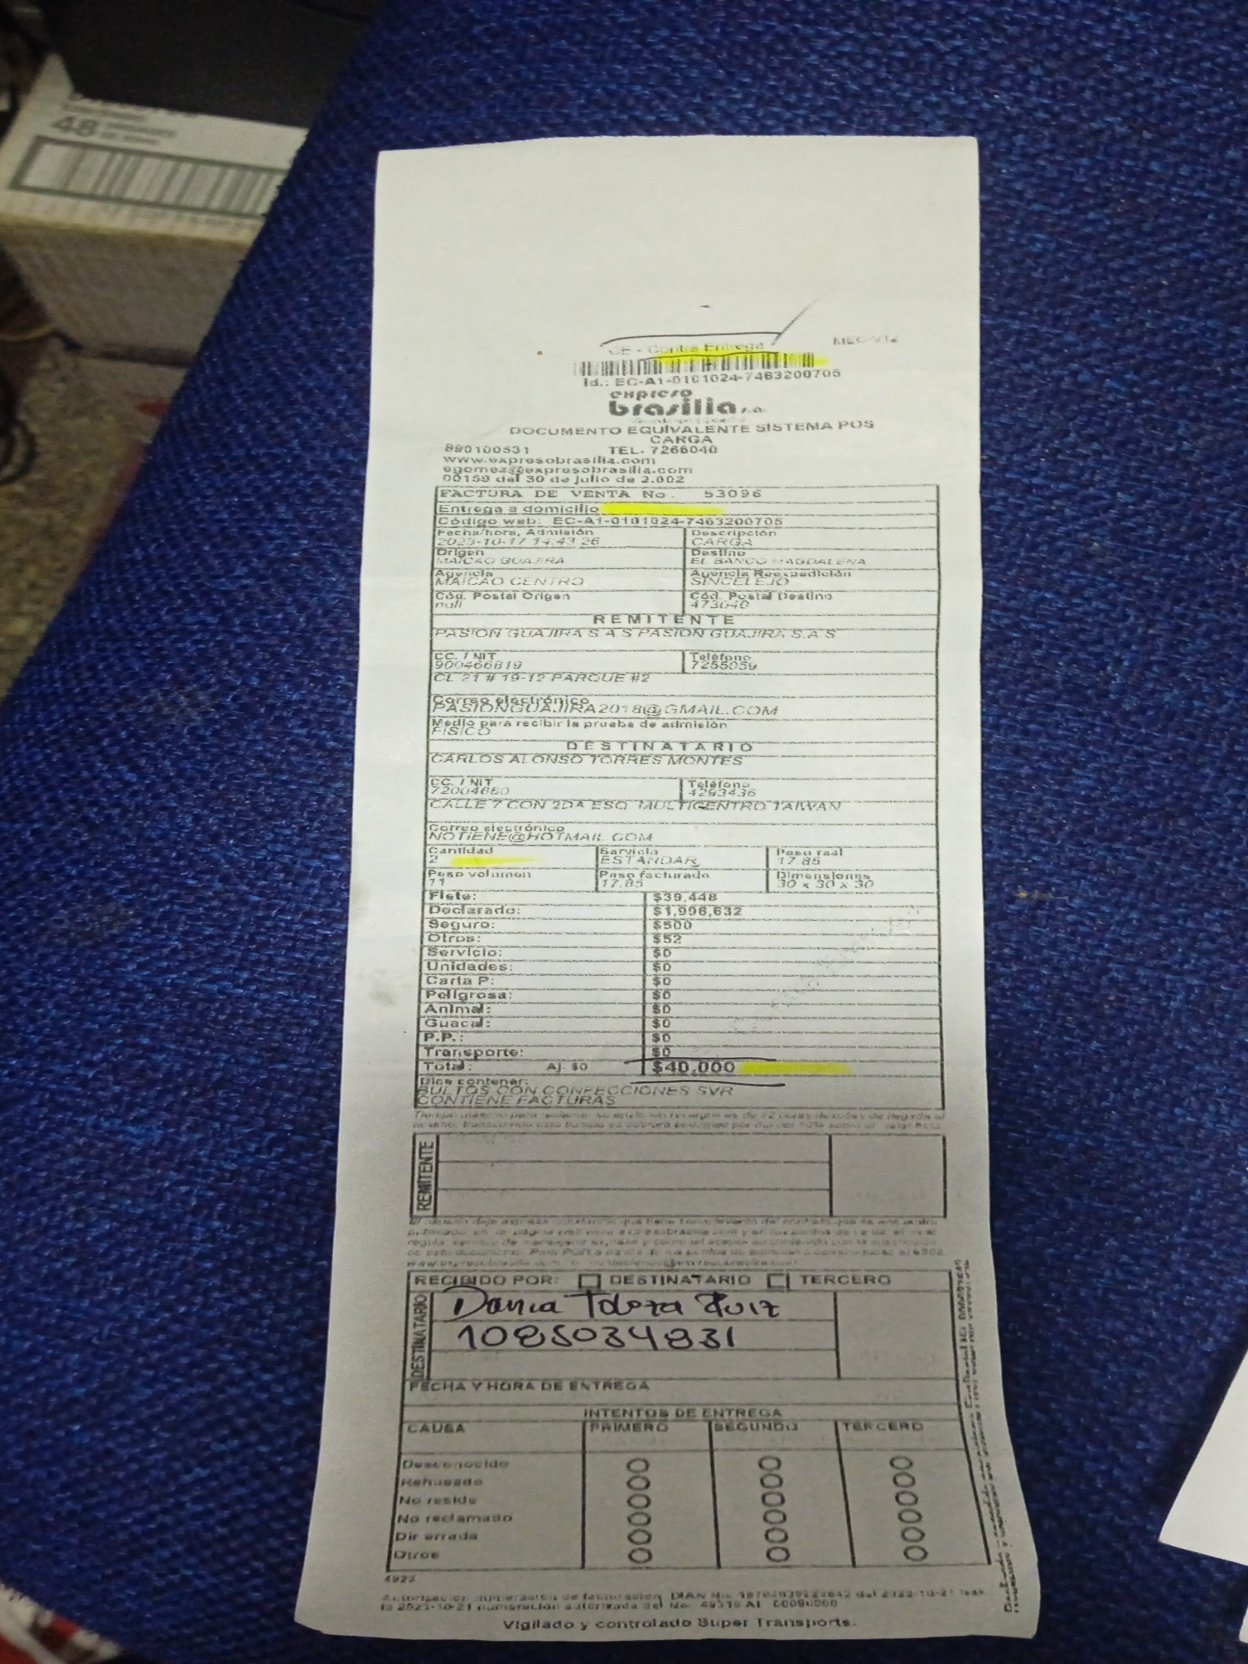 48
CE - Contra Entrega
Id.: EC-A1-0101024-7463200705
expreso
brasilia s.a.
DOCUMENTO EQUIVALENTE SISTEMA POS
CARGA
890100531 TEL. 7266040
www.expresobrasilia.com
egomez@expresobrasilia.com
00159 del 30 de julio de 2.002
FACTURA DE VENTA No. 53096
Entrega a domicilio
Código web: EC-A1-0101024-7463200705
Fecha/hora, Admisión Descripción
2023-10-17 14:43:26 CARGA
Origen Destino
MAICAO GUAJIRA EL BANCO MAGDALENA
Agencia Agencia Reexpedición
MAICAO CENTRO SINCELEJO
Cód. Postal Origen Cód. Postal Destino
null 473040
REMITENTE
PASION GUAJIRA S A S PASION GUAJIRA S.A.S
CC. / NIT Teléfono
900466819 7255059
CL 21 # 19-12 PARQUE #2
Correo electrónico
PASIONGUAJIRA2018@GMAIL.COM
Medio para recibir la prueba de admisión
FISICO
DESTINATARIO
CARLOS ALONSO TORRES MONTES
CC. / NIT Teléfono
72004660 4293436
CALLE 7 CON 2DA ESQ MULTICENTRO TAIWAN
Correo electrónico
NOTIENE@HOTMAIL.COM
Cantidad Servicio Peso real
2 ESTANDAR 17.85
Peso volumen Peso facturado Dimensiones
11 17.85 30 x 30 x 30
Flete: $39,448
Declarado: $1,996,632
Seguro: $500
Otros: $52
Servicio: $0
Unidades: $0
Carta P: $0
Peligrosa: $0
Animal: $0
Guacal: $0
P.P.: $0
Transporte: $0
Total: Aj. $0 $40,000
Dice contener:
BULTOS CON CONFECCIONES SVR
CONTIENE FACTURAS
REMITENTE
RECIBIDO POR: DESTINATARIO TERCERO
DESTINATARIO
Dania Ruiz
1085034831
FECHA Y HORA DE ENTREGA
INTENTOS DE ENTREGA
CAUSA PRIMERO SEGUNDO TERCERO
Desconocido
Rehusado
No reside
No reclamado
Dir errada
Otros
4923
Vigilado y controlado Super Transporte.